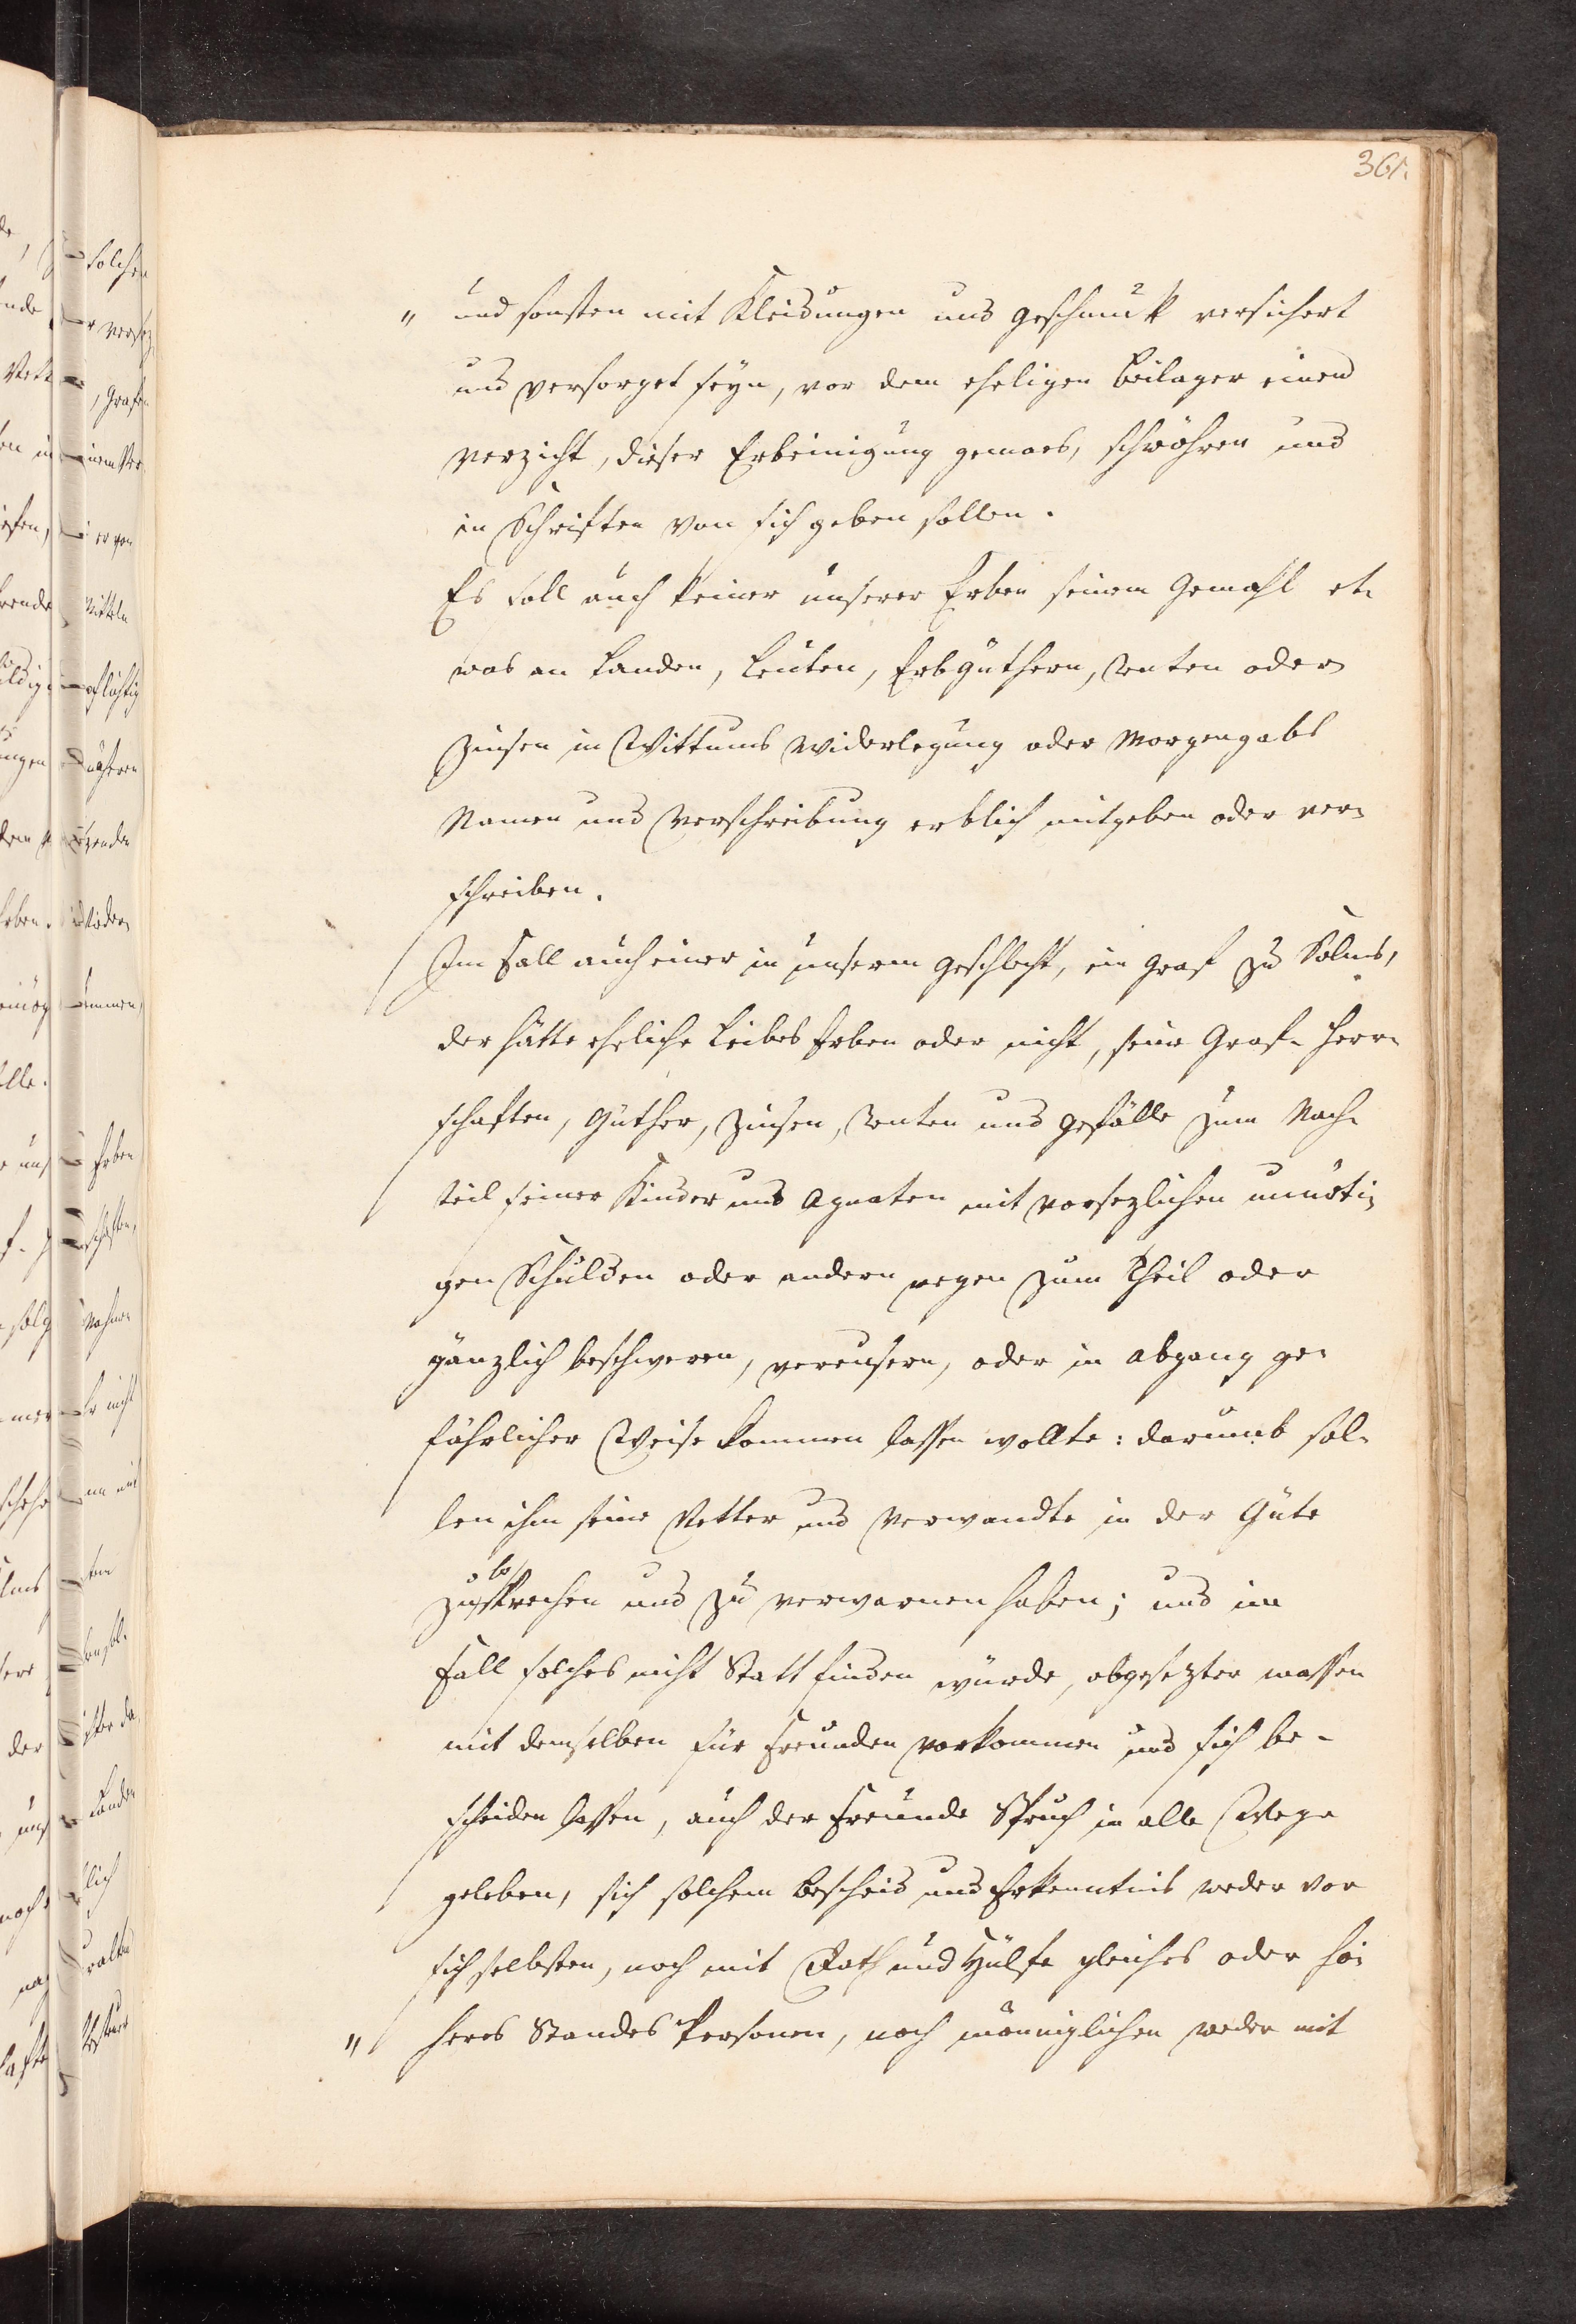 361.
" und sonsten mit Kleidungen und geschmuck versichert
und versorget seyn, vor dem eheligen Beilager einen
Verzicht, dieser Erbeinigung gemaes, schwöhren und
in Schriften von sich geben sollen.
Es soll auch keiner unserer Erben seinem Gemahl et-
was an Landen, Leuten, Erbgüthern, Renten oder
Zinsen in Wittums Widerlegung oder Morgengabs
Namen und Verschreibung erblich mitgeben oder ver-
schreiben.
Im Fall auch einer in unserem Geschlecht, ein Graf zu Solms,
der hätte eheliche Leibes Erben oder nicht, seine Graf- Herr-
schaften, Güther, Zinsen, Renten und gefälle zum Nach-
teil seiner Kinder und Agnaten mit vorsezlichen unnöti-
gen Schulden oder andern wegen zum Theil oder
gänzlich beschweren, vereusern, oder in abgang ge-
fährlicher Weise kommen lassen wollte: darumb sol-
len ihm seine Vetter und Verwandte in der Güte
zusprechen und zu verwarnen haben; und im
Fall solches nicht Statt finden würde, obgesezter massen
mit demselben für Freunden vorkommen und sich be-
scheiden lassen, auch der Freunde Spruch in alle Wege
geleben, sich solchem Bescheid und Erkenntnis weder vor
sich selbsten, noch mit Rath und Hülfe gleiches oder hö-
" heres Standes Personen, noch männiglichen weder mit